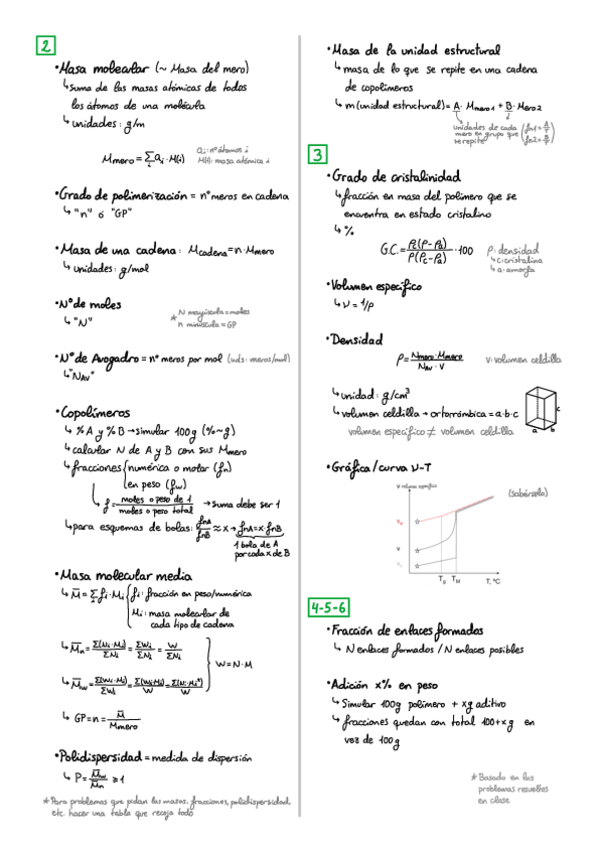 2
•Masa molecular (~ Masa del mero)
↳suma de las masas atómicas de todos
los átomos de una molécula
↳unidades: g/m
Mmero = Σ ai · M(i)
ai: nº átomos i
M(i): masa atómica i
•Grado de polimerización = nº meros en cadena
↳ "n" ó "GP"
•Masa de una cadena: Mcadena = n·Mmero
↳unidades: g/mol
•Nº de moles
↳ "N"
* N mayúscula = moles
n minúscula = GP
•Nº de Avogadro = nº meros por mol (uds: meros/mol)
↳ "NAV"
•Copolímeros
↳ % A y % B → simular 100g (% ~ g)
↳calcular N de A y B con sus Mmero
↳fracciones { numérica o molar (fn)
en peso (fw)
↳ f = moles o peso de 1 / moles o peso total → suma debe ser 1
↳para esquemas de bolas: fnA/fnB ≈ x → fnA = x·fnB
1 bola de A
por cada x de B
•Masa molecular media
↳ M̅ = Σ fi · Mi { fi: fracción en peso/numérica
Mi: masa molecular de
cada tipo de cadena
↳ M̅n = Σ(Ni·Mi)/ΣNi = ΣWi/ΣNi = W/ΣNi
W = N·M
↳ M̅w = Σ(Wi·Mi)/ΣWi = Σ(Wi·Mi)/W = Σ(Ni·Mi²)/W
↳ GP = n = M̅/Mmero
•Polidispersidad = medida de dispersión
↳ P = M̅w/M̅n ≥ 1
* Para problemas que pidan las masas, fracciones, polidispersidad,
etc. hacer una tabla que recoja todo
•Masa de la unidad estructural
↳masa de lo que se repite en una cadena
de copolímeros
↳ m(unidad estructural) = A · Mmero1 + B · Mero2
unidades de cada
mero en grupo que
se repite
3
•Grado de cristalinidad
↳fracción en masa del polímero que se
encuentra en estado cristalino
↳ %
G.C. = ρc(ρ-ρa)/ρ(ρc-ρa) · 100
ρ: densidad
↳c: cristalina
↳a: amorfa
•Volumen específico
↳ v = 1/ρ
•Densidad
ρ = Nmero·Mmero / NAV · V
V: volumen celdilla
↳unidad: g/cm³
↳volumen celdilla → ortorrómbica = a·b·c
volumen específico ≠ volumen celdilla
a b c
•Gráfica/curva v-T
(sabérsela)
v volumen específico
v
Tg TM T, ºC
4-5-6
•Fracción de enlaces formados
↳ N enlaces formados / N enlaces posibles
•Adición x% en peso
↳ Simular 100g polímero + xg aditivo
↳ fracciones quedan con total 100+xg en
vez de 100g
* Basado en los
problemas resueltos
en clase